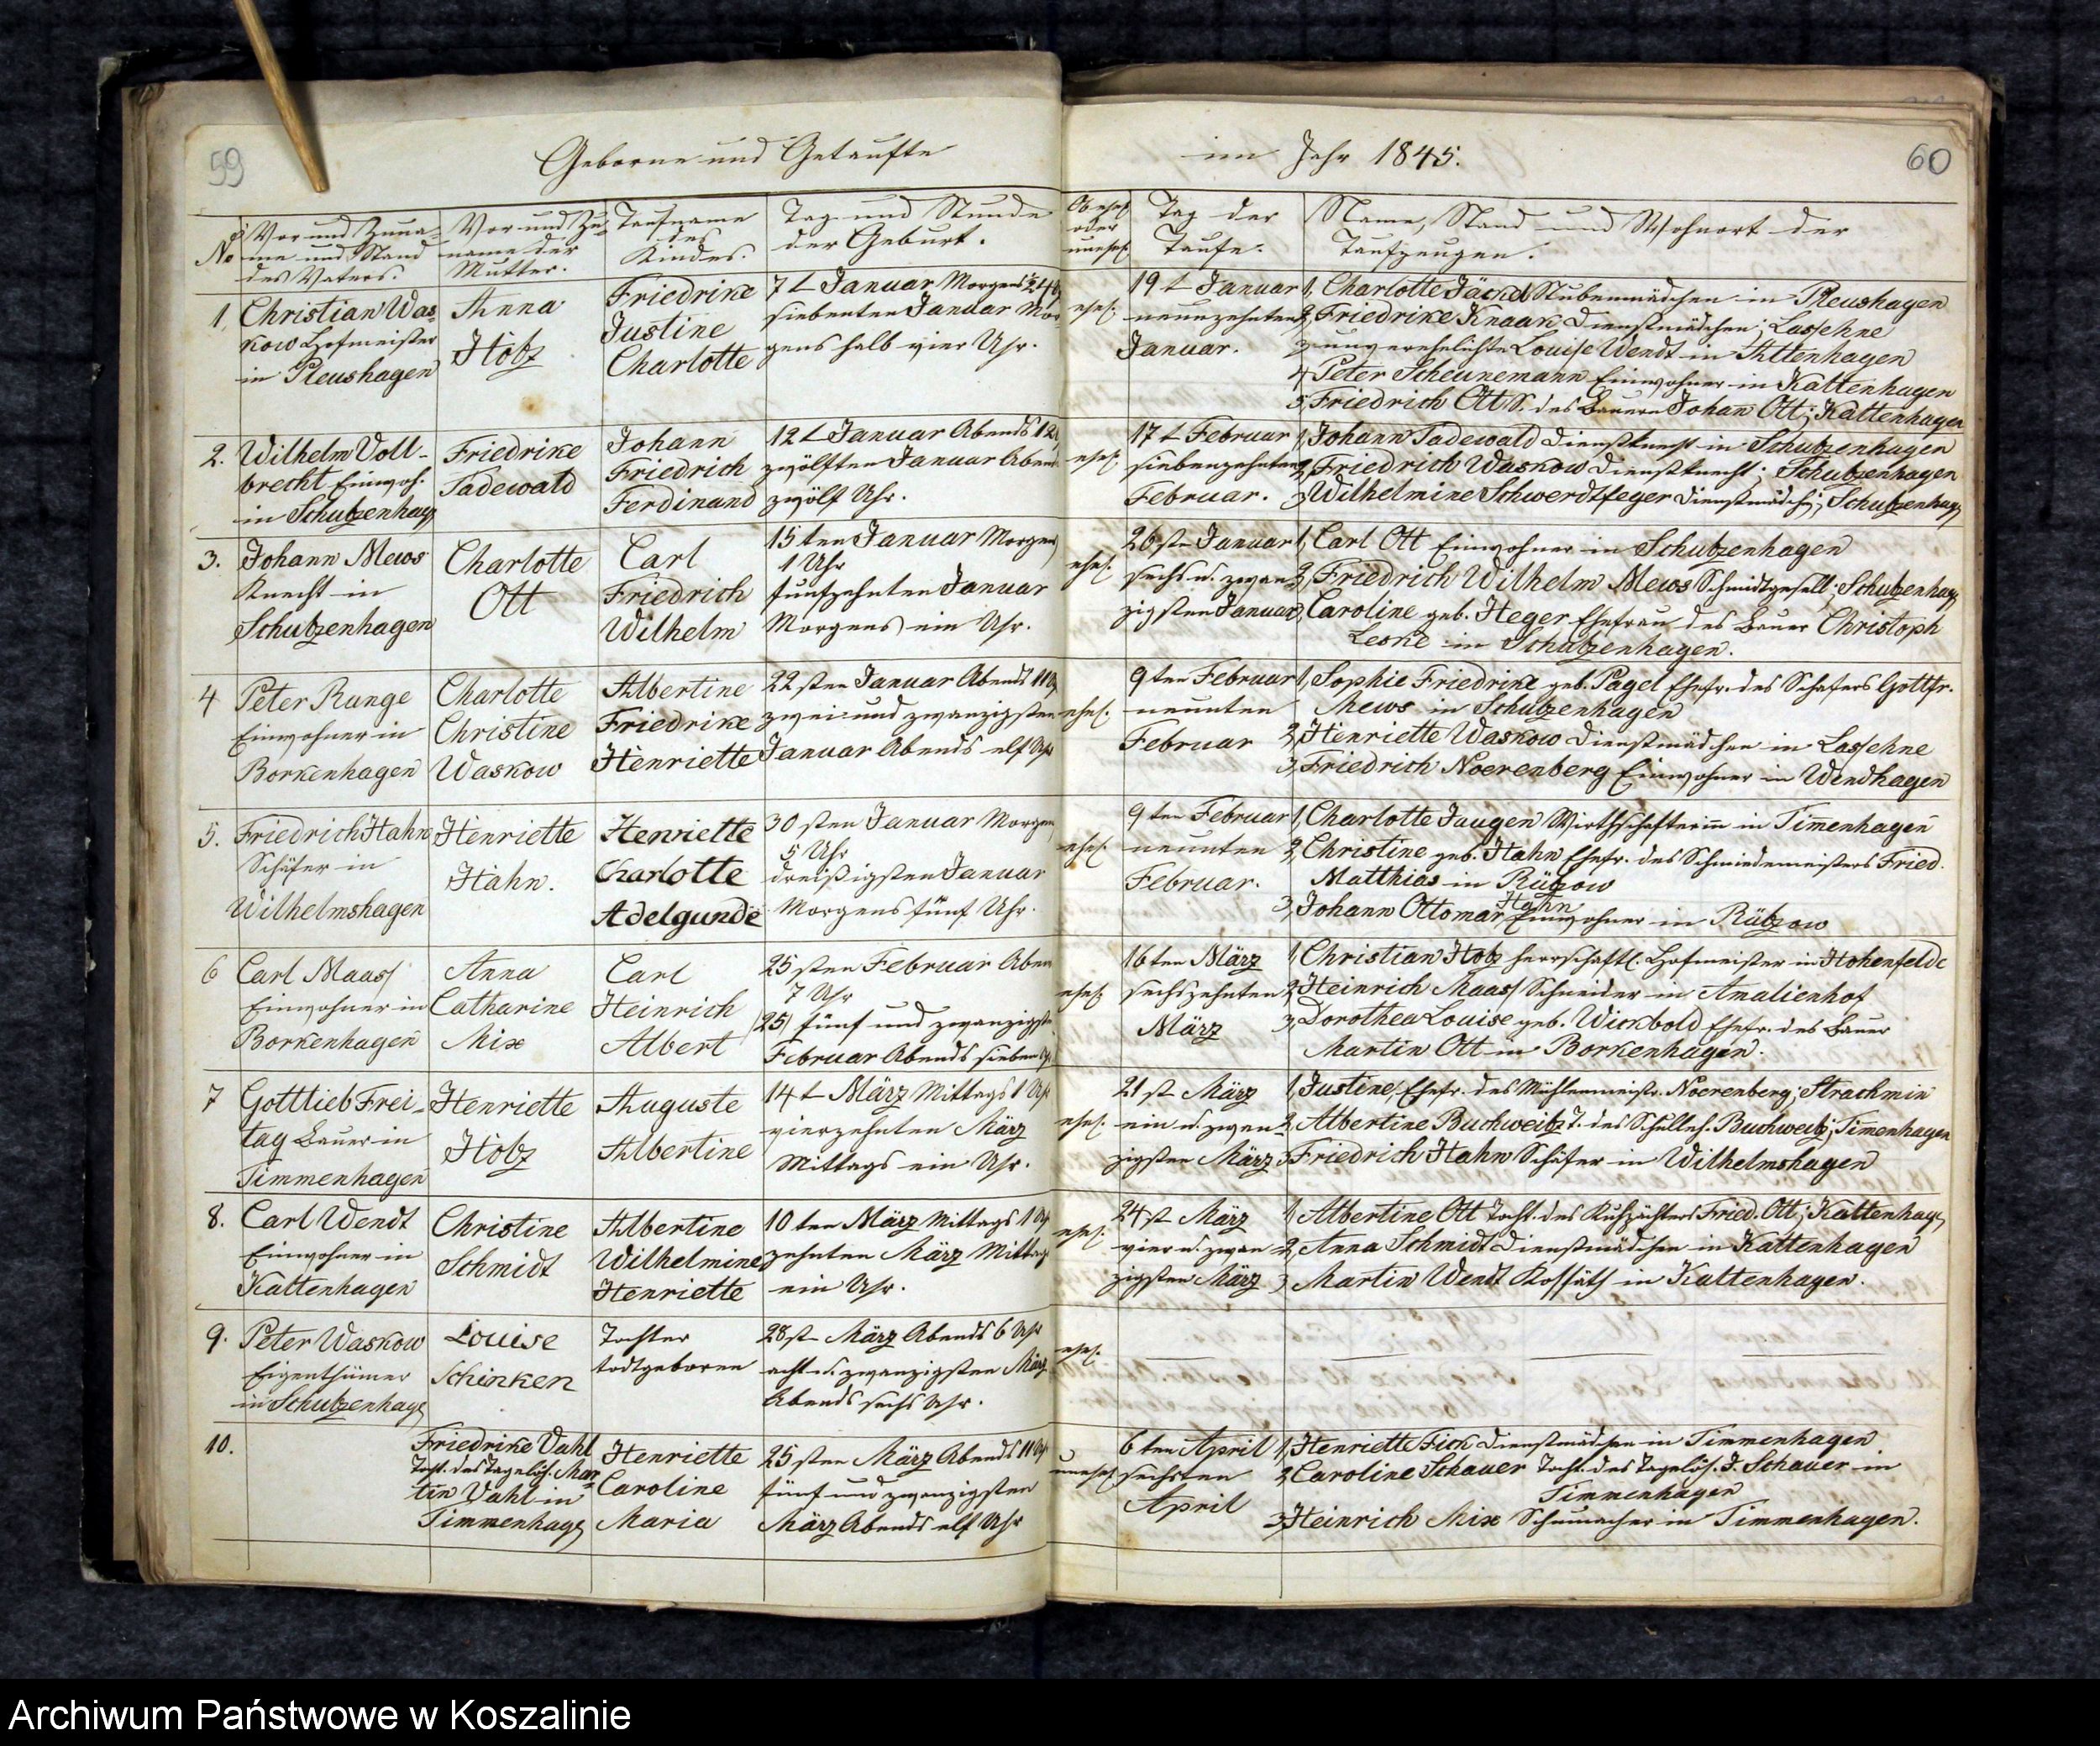 59
Geborne und Getaufte
No
Vor und Zuna-
me und Stand
des Vaters.
Vor und Zu-
name der
Mutter.
Taufname
des
Kindes.
Tag und Stunde
der Geburt.
1,
Christian Was-
kow Hofmeister
in Pleushagen
Anna
Hotz
Friedrike
Justine
Charlotte
7t Januar Morgens ½4
siebenten Januar Mor
gens halb vier Uhr.
2.
Wilhelm Voll-
brecht Einwoh.
in Schutzenhag
Friedrike
Tadewald
Johann
Friedrich
Ferdinand
12t Januar Abends 12
zwölften Januar Abends
zwölf Uhr.
3.
Johann Mews
Knecht in
Schutzenhagen
Charlotte
Ott
Carl
Friedrich
Wilhelm
15ten Januar Morgens
1 Uhr
funfzehnten Januar
Morgens ein Uhr.
4
Peter Range
Einwohner in
Borkenhagen
Charlotte
Christine
Waskow
Albertine
Friedrike
Henriette
22sten Januar Abends 11
zwei und zwanzigsten
Januar Abends elf Uhr
5.
Friedrich Hahn
Schäfer in
Wilhelmshagen
Henriette
Hahn.
Henriette
Charlotte
Adelgunde
30sten Januar Morgens
5 Uhr
dreißigsten Januar
Morgens fünf Uhr.
6
Carl Maass
Einwohner in
Borkenhagen
Anna
Catharine
Mix
Carl
Heinrich
Albert
25sten Februar Abends
7 Uhr
25) fünf und zwanzigsten
Februar Abends sieben Uhr
7
Gottlieb Frei-
tag Bauer in
Timmenhagen
Henriette
Hotz
Auguste
Albertine
14t März Mittags 1 Uhr
vierzehnten März
Mittags ein Uhr.
8.
Carl Wendt
Einwohner in
Kattenhagen
Christine
Schmidt
Albertine
Wilhelmine
Henriette
10ten März Mittags 1 Uhr
zehnten März Mittags
ein Uhr.
9.
Peter Waskow
Eigenthümer
in Schutzenhag
Louise
Schinken
Tochter
todtgeboren
28st März Abends 6 Uhr
acht u. zwanzigsten März
Abends sechs Uhr.
10.
Friedrike Vahl
Tocht. des Tagelöh. Mar-
tin Vahl in
Timmenhag
Henriette
Caroline
Maria
25sten März Abends 11 Uhr
fünf und zwanzigsten
März Abends elf Uhr
60
im Jahr 1845.
Ob ehel.
oder
unehel.
Tag der
Taufe.
Name, Stand und Wohnort der
Taufzeugen.
ehel.
19t Januar
neunzehnten
Januar.
1, Charlotte Jäckel Stubenmädchen in Pleushagen
2, Friedrike Knaak Dienstmädchen i. Lassehne
3 unverehelichte Louise Wendt in Altenhagen
4 Peter Scheunemann Einwohner in Kattenhagen
5, Friedrich Ott S. des Bauern Johan Ott i. Kattenhagen
ehel.
17t Februar
siebenzehnten
Februar.
1, Johann Tadewald Dienstknecht in Schutzenhagen
2, Friedrich Waskow Dienstknecht i. Schutzenhagen
3 Wilhelmine Schwerdtfeger Dienstmädch. i. Schutzenhag
ehel.
26st Januar
sechs u. zwan-
zigsten Januar
1, Carl Ott Einwohner in Schutzenhagen
2, Friedrich Wilhelm Mews Schmidtgesell i. Schutzenhag
3, Caroline geb. Heger Ehefrau des Bauer Christoph
Leske in Schutzenhagen.
ehel.
9ten Februar
neunten
Februar
1, Sophie Friedrike geb. Pagel Ehefr. des Schafers Gottfr.
Mews in Schutzenhagen
2, Henriette Waskow Dienstmädchen in Lassehne
3, Friedrich Noerenberg Einwohner in Wendhagen
ehel.
9ten Februar
neunten
Februar.
1, Charlotte Jaugen Wirthschafterin in Timenhagen
2, Christine geb. Hahn Ehefr. des Schmiedemeisters Fried.
Matthias in Rützow
Hahn
3, Johann Ottomar Einwohner in Rützow
ehel.
16ten März
sechszehnten
März
1, Christian Hotz herrschaftl. Hofmeister in Hohenfelde
2, Heinrich Maass Schneider in Amalienhof
3, Dorothea Louise geb. Wickbold Ehefr. des Bauer
Martin Ott in Borkenhagen.
ehel.
21st März
ein u. zwan-
zigsten März
1, Justine Ehefr. des Mühlenmeistr. Noerenberg i. Strachmin
2, Albertine Buchweitz T. des Schulleh. Buchweitz i. Timenhagen
3 Friedrich Hahn Schäfer in Wilhelmshagen
ehel.
24st März
vier u. zwan
zigsten März
1, Albertine Ott Tocht. des Kuhpächters Fried. Ott i. Kattenhag
2, Anna Schmidt Dienstmädchen in Kattenhagen
3 Martin Wendt Kossäth in Kattenhagen.
ehel.
unehel.
6ten April
sechsten
April
1, Henriette Fick Dienstmädchen in Timmenhagen
2, Caroline Schauer Tocht. des Tagelöh. J. Schauer in
Timmenhagen
3, Heinrich Mix Schumacher in Timmenhagen.
Archiwum Państwowe w Koszalinie